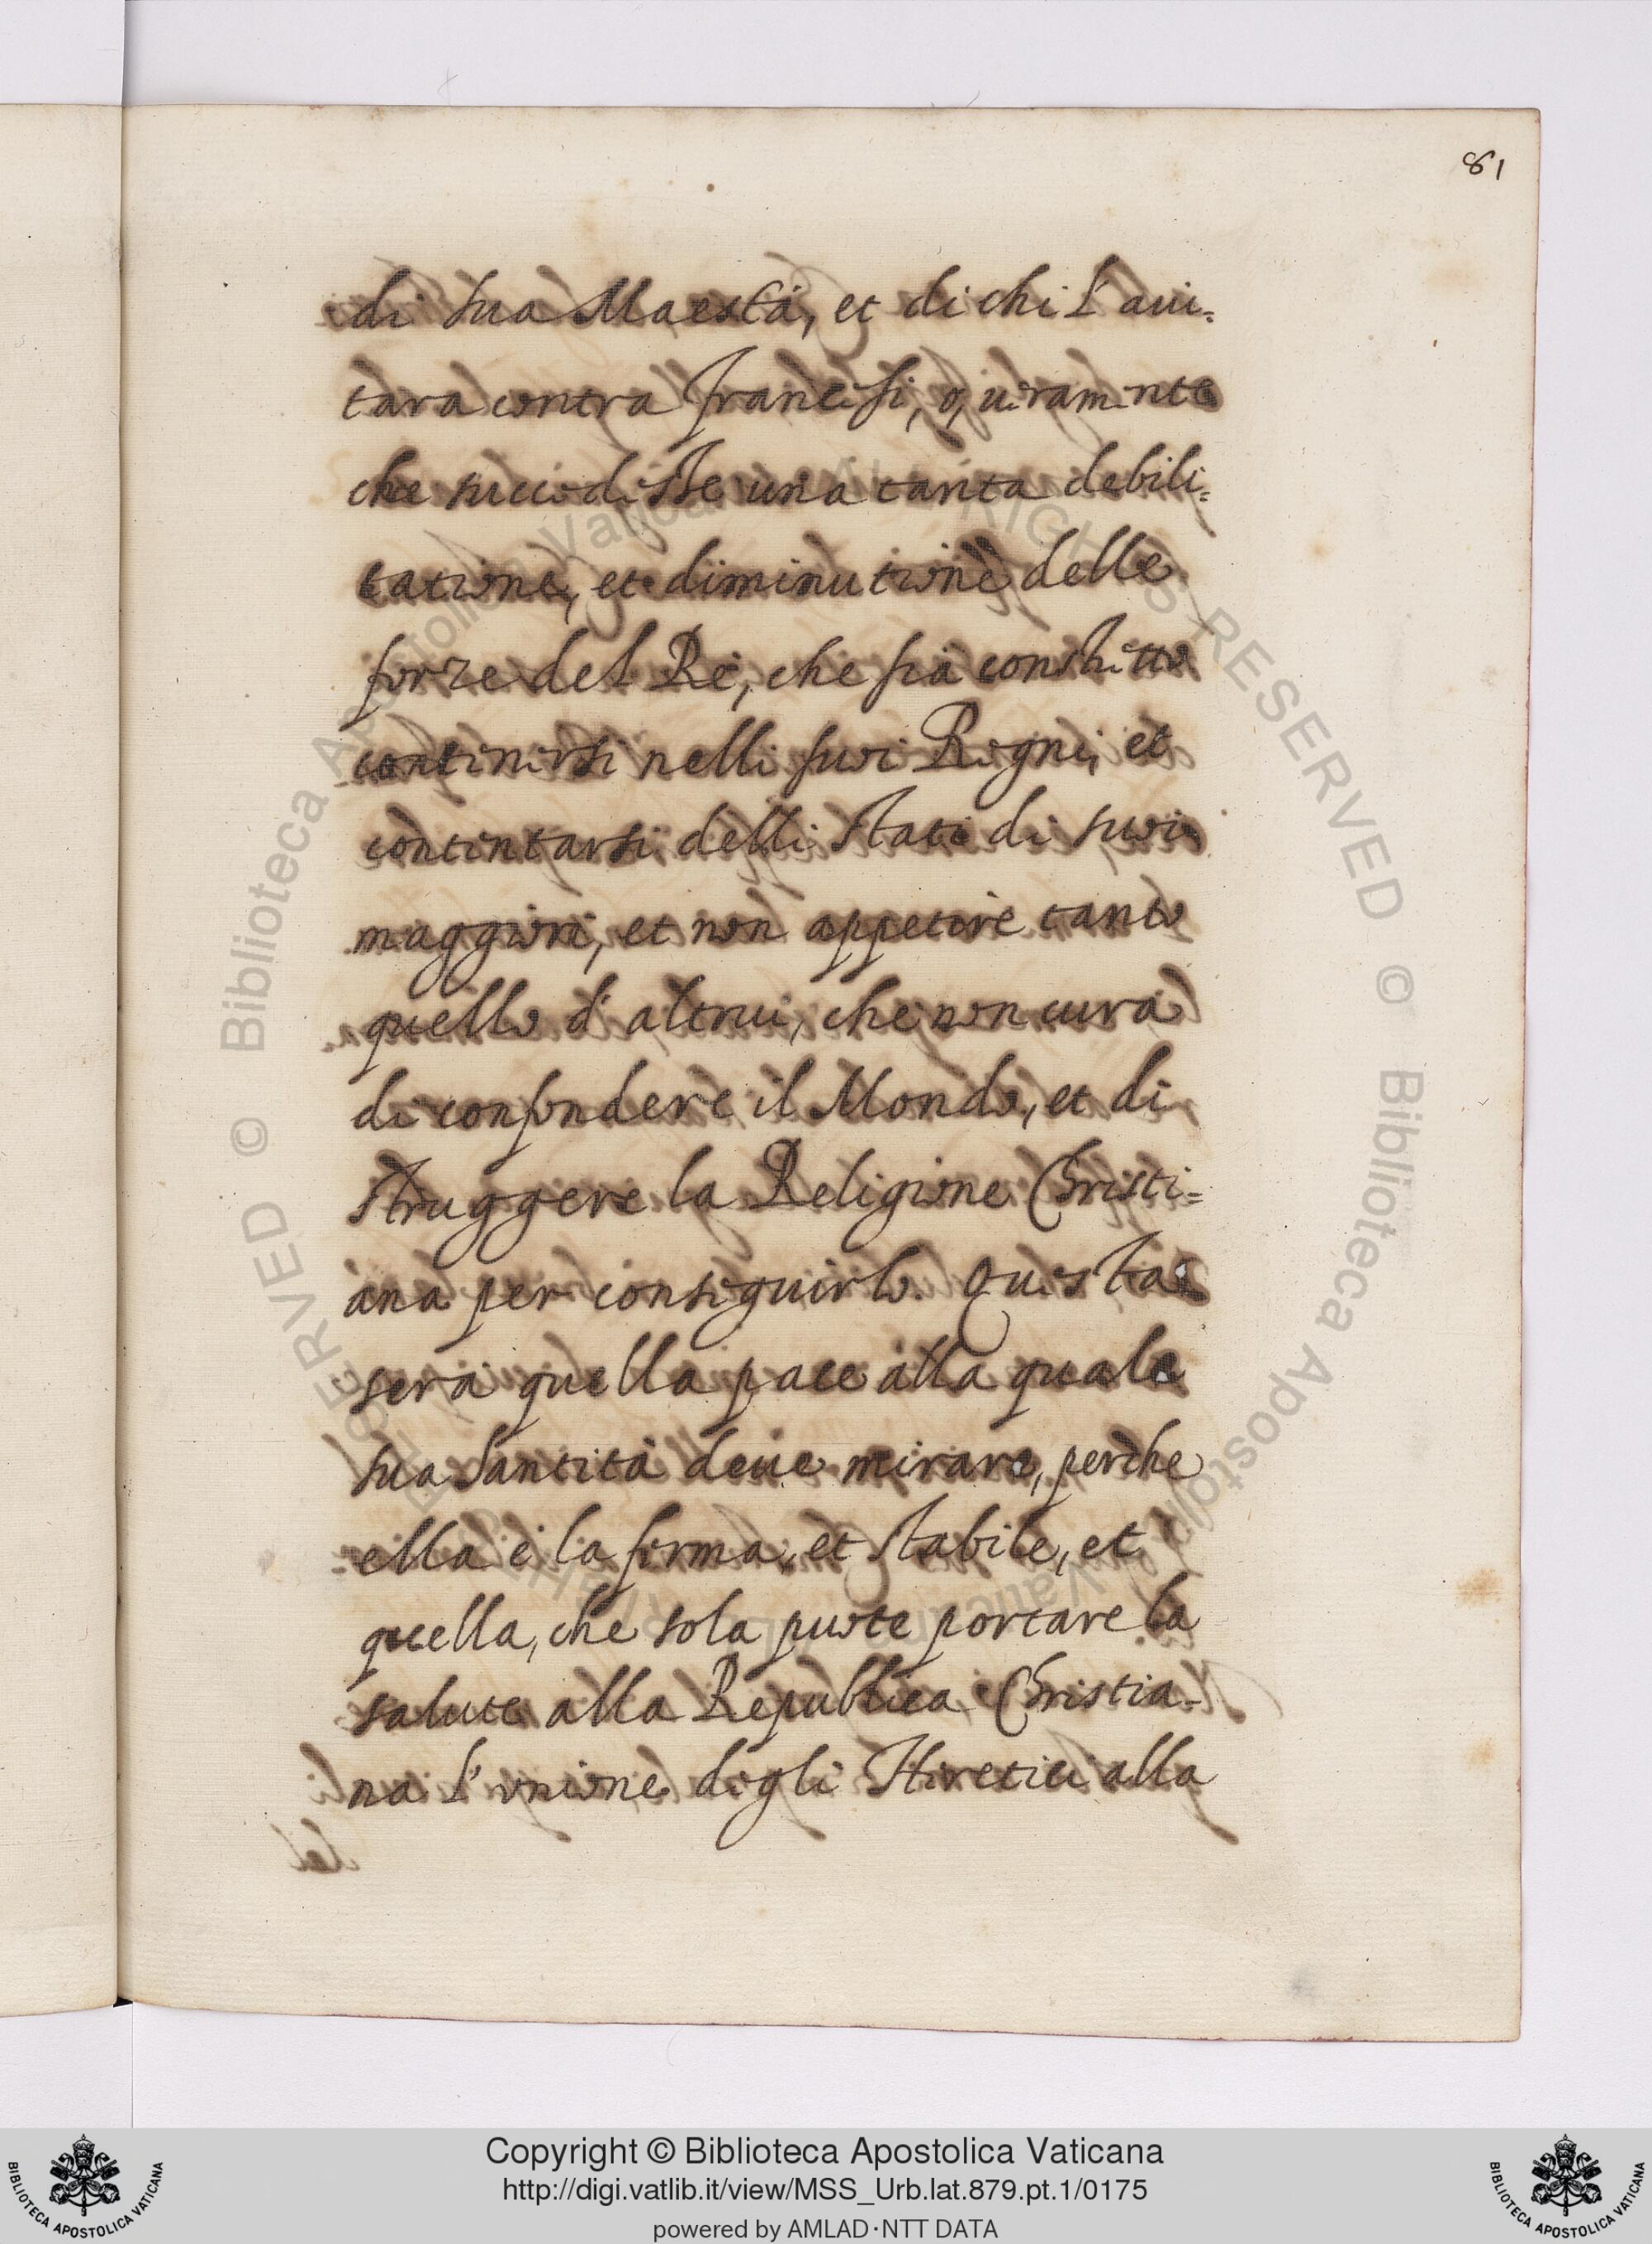 81
di sua Maestà, et di chi l'aui=
tara contra Francesi, o, ueramente
che succedesse una tanta debili=
tatione, et diminutione delle
forze del Rè, che sia constretto
contenersi nelli suoi Regni, et
contentarsi delli Stati di suoi
maggiori, et non appetire tanto
quello d'altrui, che non cura
di confondere il Mondo, et di
struggere la Religione Christi=
ana per conseguirlo. Questa
serà quella pace alla quale
sua Santità deue mirare, perche
ella è la ferma, et stabile, et
quella, che sola puote portare la
salute alla Republica Christia-
na l'unione degli Heretici alla
© Biblioteca Apostolica Vaticana ALL RIGHTS RESERVED © Biblioteca Apostolica Vaticana ALL RIGHTS RESERVED
Copyright © Biblioteca Apostolica Vaticana
http://digi.vatlib.it/view/MSS_Urb.lat.879.pt.1/0175
powered by AMLAD·NTT DATA
BIBLIOTECA APOSTOLICA VATICANA
BIBLIOTECA APOSTOLICA VATICANA